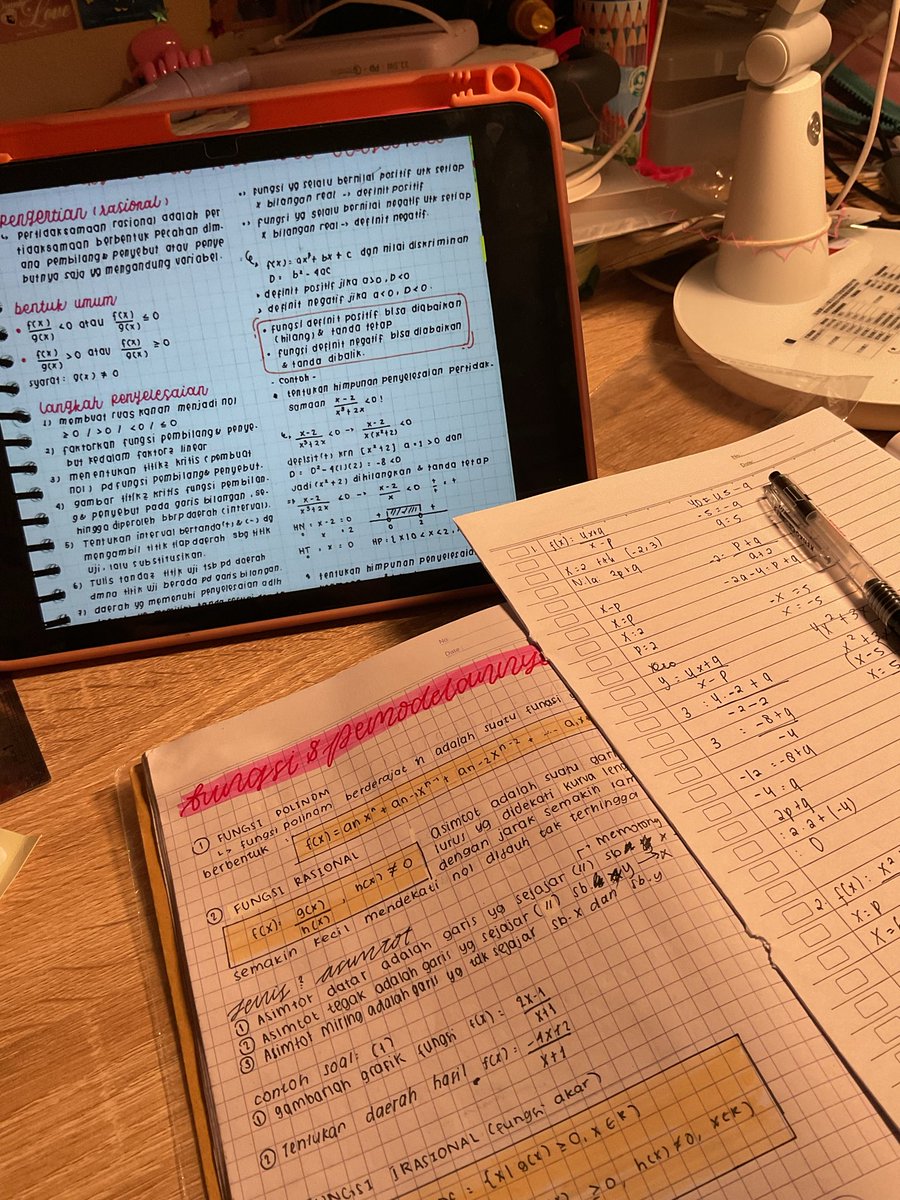 Love
pengertian (rasional)
↳ Pertidaksamaan rasional adalah per
tidaksamaan berbentuk pecahan dim-
ana pembilang & penyebut atau penye
butnya saja yg mengandung variabel.
bentuk umum
• f(x)/g(x) <0 atau f(x)/g(x) ≤ 0
• f(x)/g(x) >0 atau f(x)/g(x) ≥ 0
syarat: g(x) ≠ 0
langkah penyelesaian
1) membuat ruas kanan menjadi nol
≥0 / >0 / <0 / ≤0
2) faktorkan fungsi pembilang & penye-
but kedalam faktor2 linear
3) menentukan titik2 kritis (pembuat
nol) pd fungsi pembilang & penyebut.
4) gambar titik2 kritis fungsi pembilan-
g & penyebut pada garis bilangan, se-
hingga diperoleh bbrp daerah (interval).
5) Tentukan interval bertanda (+) & (-) dg
mengambil titik tiap daerah sbg titik
uji, lalu substitusikan.
6) Tulis tanda2 titik uji tsb pd daerah
dmna titik uji berada pd garis bilangan.
7) daerah yg memenuhi penyelesaian adlh
•> Fungsi yg selalu bernilai positif utk setiap
x bilangan real -> definit positif
•> Fungsi yg selalu bernilai negatif utk setiap
x bilangan real -> definit negatif.
↳ f(x) = ax² + bx + c dgn nilai diskriminan
D = b² - 4ac
> definit positif jika a>0, D<0
> definit negatif jika a<0, D<0.
• fungsi definit positif bisa diabaikan
(hilang) & tanda tetap
• fungsi definit negatif bisa diabaikan
& tanda dibalik.
- contoh -
• tentukan himpunan penyelesaian pertidak-
samaan x-2/x³+2x <0!
↳ x-2/x³+2x <0 -> x-2/x(x²+2) <0
defisit(+) krn [x²+2] a=1 >0 dan
D = 0²-4(1)(2) = -8<0
jadi (x²+2) dihilangkan & tanda tetap
=> x-2/x³+2x <0 -> x-2/x <0
HN : x-2 = 0
x = 2
HT : x = 0
0 2
HP: { x | 0 < x < 2,
• tentukan himpunan penyelesaian
No.
Date.
fungsi & pemodelannya
① FUNGSI POLINOM
↳ fungsi polinom berderajat n adalah suatu fungsi
berbentuk :
f(x) = anxⁿ + an-1xⁿ⁻¹ + an-2xⁿ⁻² + ... a1x
② FUNGSI RASIONAL
f(x) = g(x)/h(x), h(x) ≠ 0
asimtot adalah suatu gari
lurus yg didekati kurva leng
dengan jarak semakin lam
semakin kecil mendekati nol dijauh tak terhingga
jenis² asimtot
memotong
① Asimtot datar adalah garis yg sejajar (//) sb x
② Asimtot tegak adalah garis yg sejajar (//) sb y
③ Asimtot miring adalah garis yg tdk sejajar sb.x dan sb.y
contoh soal: (1)
① gambarlah grafik fungsi f(x) = 2x-1/x+1
② Tentukan daerah hasil f(x) = -4x+2/x+1
FUNGSI IRASIONAL (fungsi akar)
= {x| g(x) ≥ 0, x∈R}
≥ 0, h(x) ≠ 0, x∈R}
No.
Date.
1 f(x) = 4x+q/x-p
X=2 (-2,3)
Nila 2p+q
x-p
x=p
x=2
p=2
y = 4x+q/x-p
3 = 4.-2+q/-2-2
3 = -8+q/-4
-12 = -8+q
-4 = q
2p+q
= 2.2+(-4)
= 0
2 f(x) = x²
X=p
-x = 5
x = -5